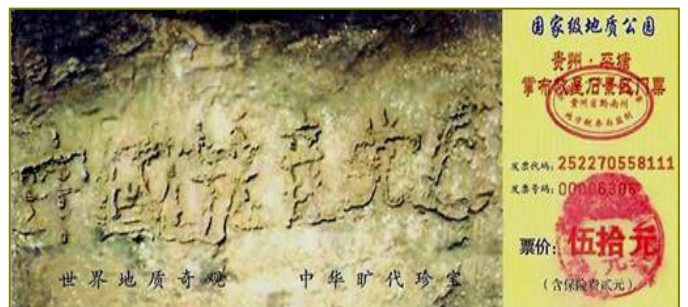 中國共产党
世界地质奇观 中华旷代珍宝
国家级地质公园
贵州·平塘
掌布
景区门票
贵州省黔南州
地方税务局监制
发票代码：252270558111
发票号码：00006306
票价：伍拾元
（含保险费贰元）